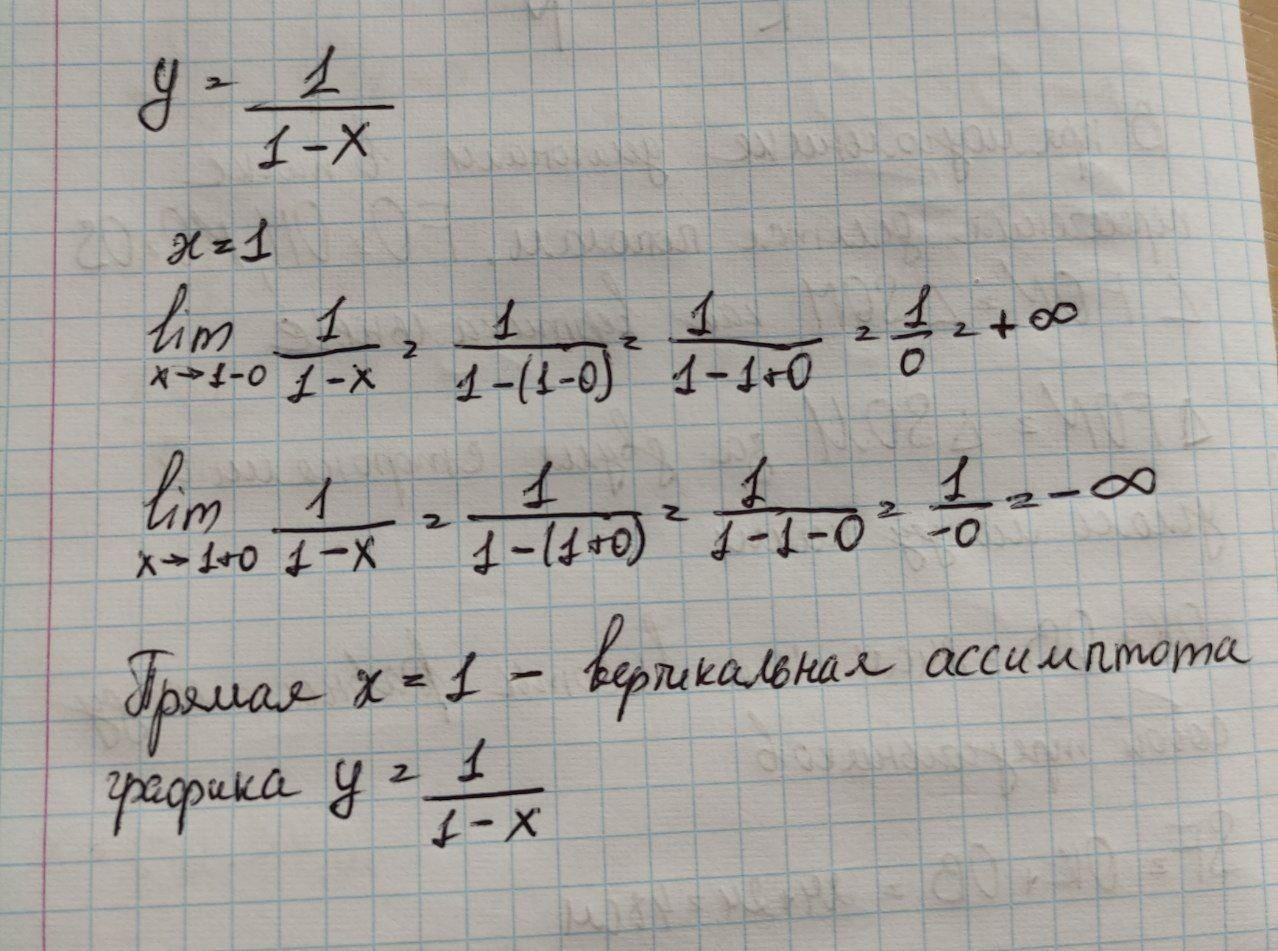 y = 1/(1-x)
x = 1
lim x→1-0 1/(1-x) = 1/(1-(1-0)) = 1/(1-1+0) = 1/0 = +∞
lim x→1+0 1/(1-x) = 1/(1-(1+0)) = 1/(1-1-0) = 1/-0 = -∞
Прямая x = 1 - вертикальная ассимптота
графика y = 1/(1-x)